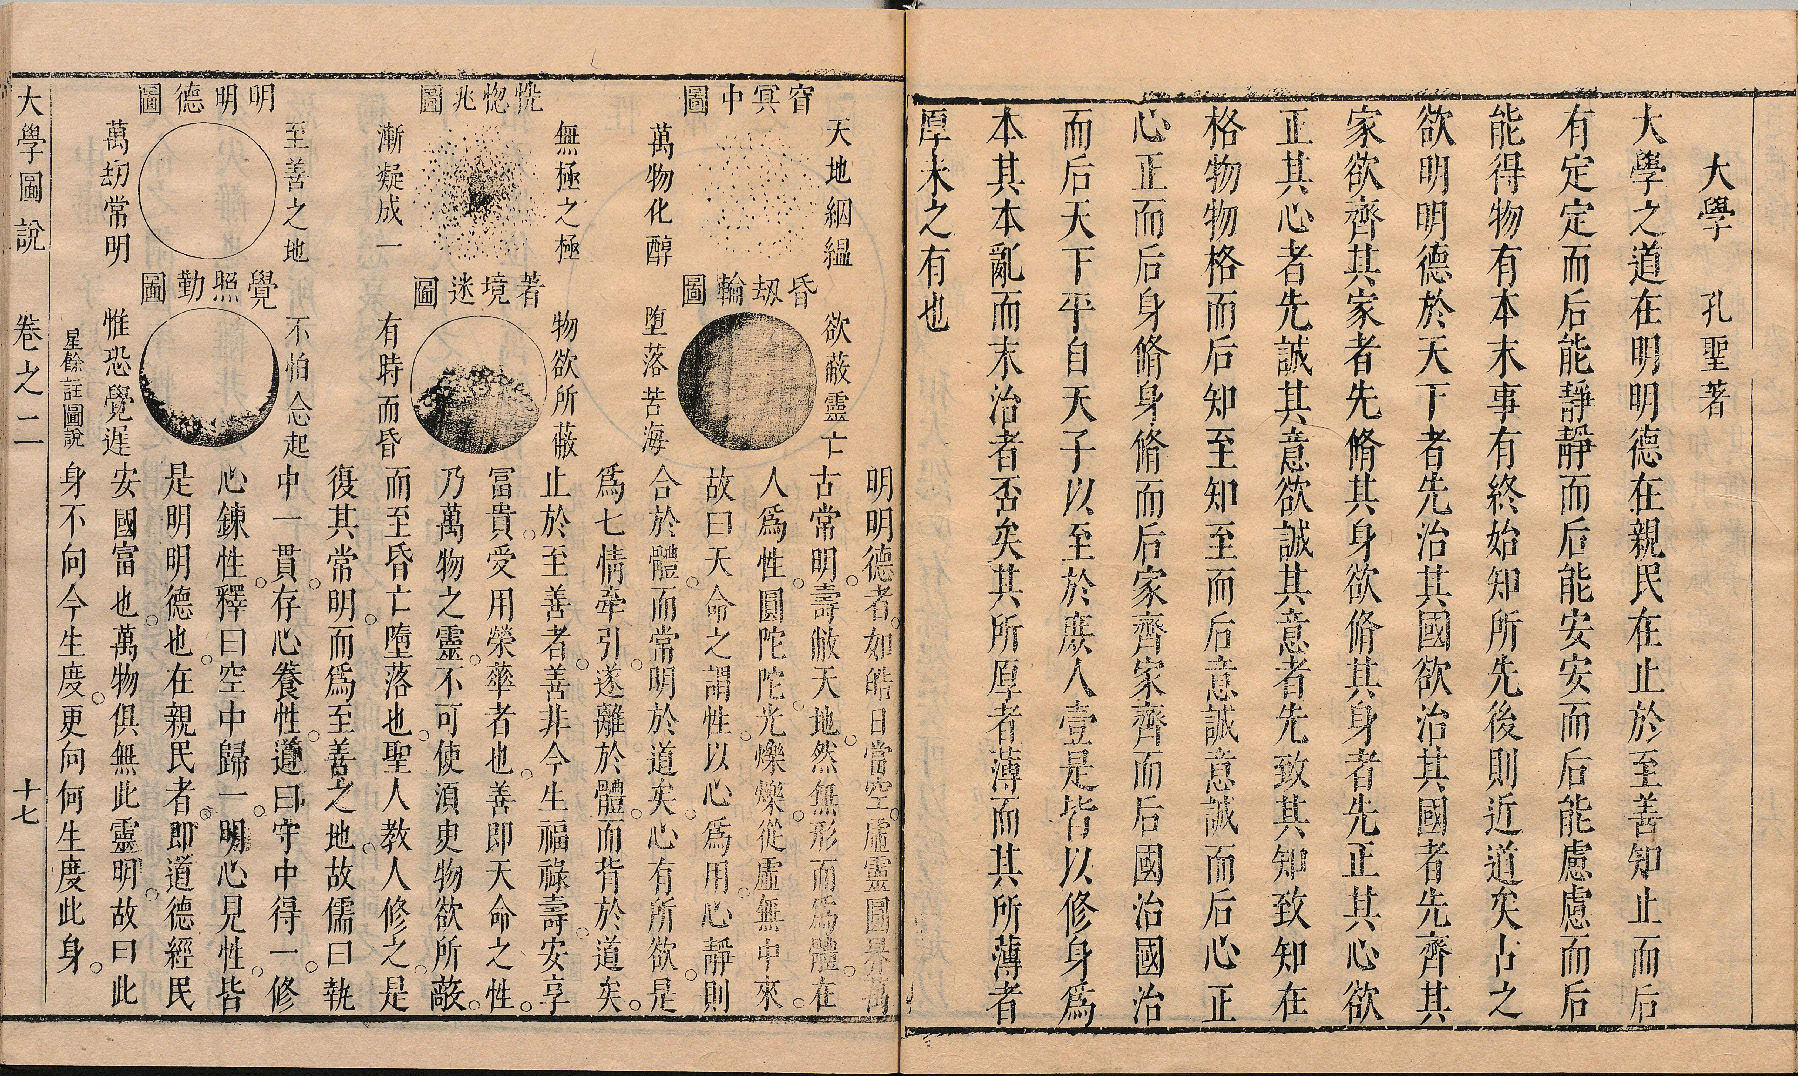 大學　孔聖著
大學之道在明明德在親民在止於至善知止而后
有定定而后能靜靜而后能安安而后能慮慮而后
能得物有本末事有終始知所先後則近道矣古之
欲明明德於天下者先治其國欲治其國者先齊其
家欲齊其家者先脩其身欲脩其身者先正其心欲
正其心者先誠其意欲誠其意者先致其知致知在
格物物格而后知至知至而后意誠意誠而后心正
心正而后身脩身脩而后家齊家齊而后國治國治
而后天下平自天子以至於庶人壹是皆以修身爲
本其本亂而末治者否矣其所厚者薄而其所薄者
厚未之有也
窅冥中圖
天地絪縕
萬物化醇
恍惚兆圖
無極之極
漸疑成一
明明德圖
至善之地
萬劫常明
昏劫輪圖
欲蔽靈亡
墮落苦海
著境迷圖
物欲所蔽
有時而昏
覺照勤圖
不怕念起
惟恐覺遲
星餘註圖說
明明德者如皓日當空虛靈圓界萬
古常明壽敝天地然無形而爲體在
人爲性圓陀陀光爍爍從虛無中來
故曰天命之謂性以心爲用心靜則
合於體而常明於道矣心有所欲是
爲七情牽引遂離於體而背於道矣
止於至善者善非今生福祿壽安享
富貴受用榮華者也善即天命之性
乃萬物之靈不可使須臾物欲所蔽
而至昏亡墮落也聖人教人修之是
復其常明而爲至善之地故儒曰執
中一貫存心養性道曰守中得一修
心鍊性釋曰空中歸一明心見性皆
是明明德也在親民者即道德經民
安國富也萬物俱無此靈明故曰此
身不向今生度更向何生度此身
大學圖說　卷之二　十七